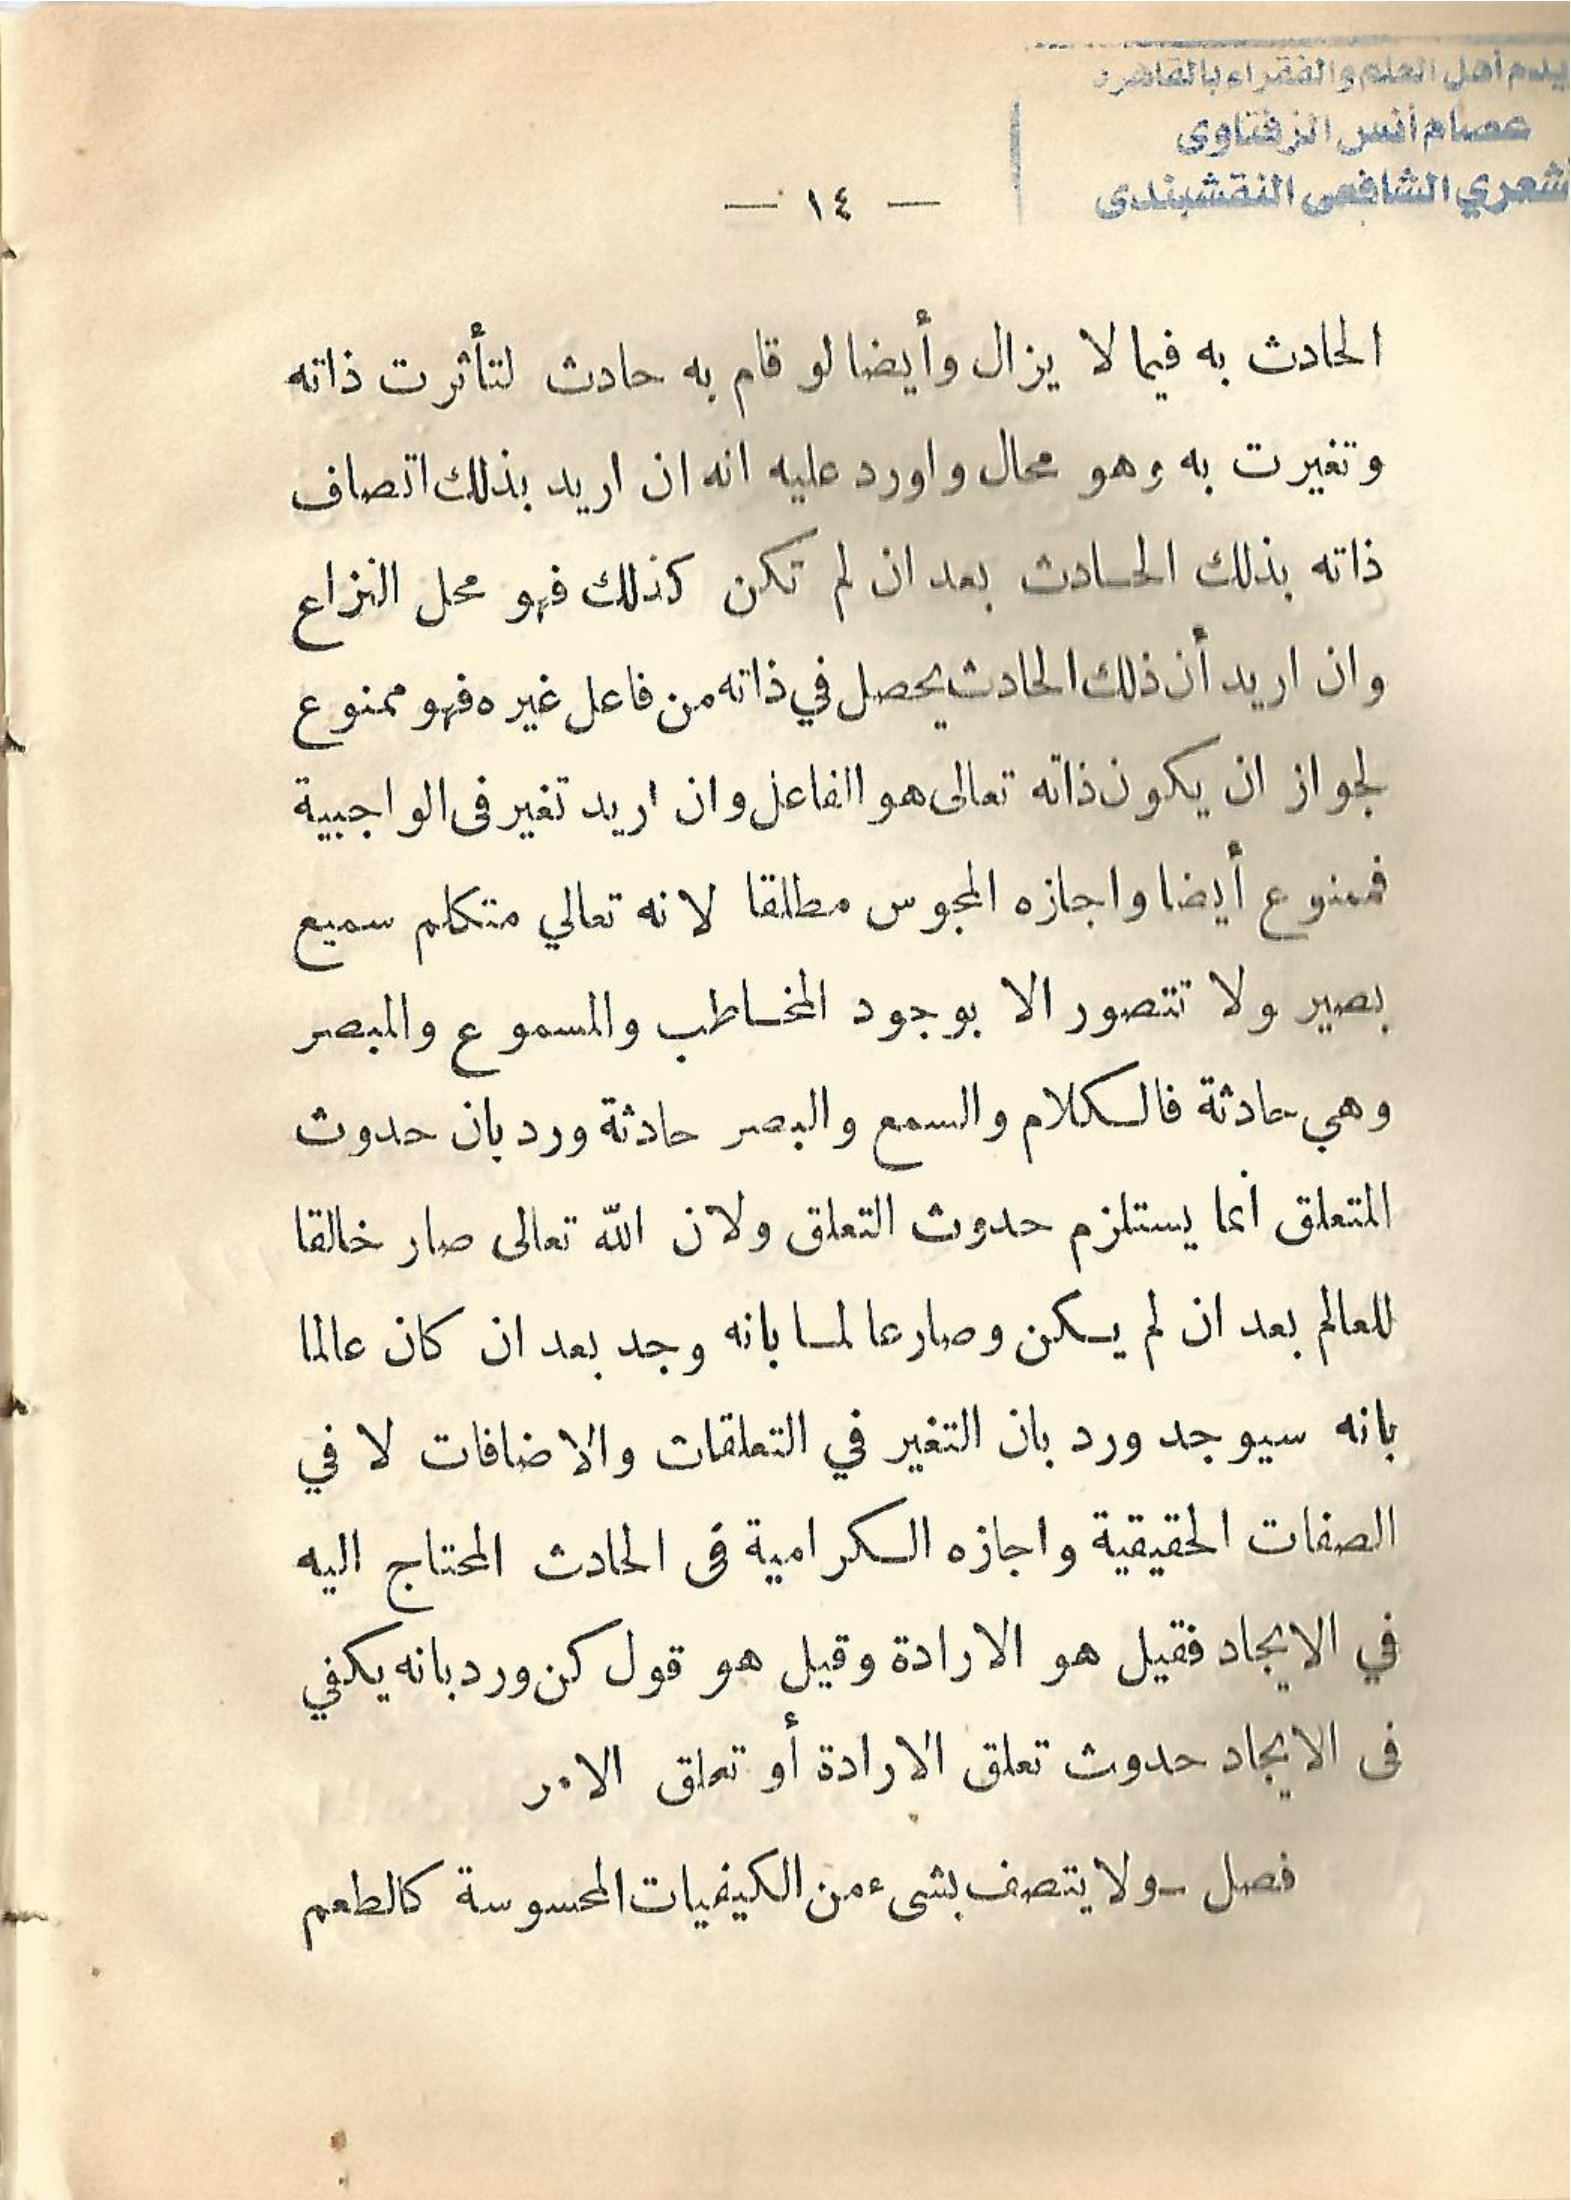 أهل العلم والفقراء بالقاهرة
عصام أنس الزفتاوى
الشافعى النقشبندى
— ١٤ —
الحادث به فيما لا يزال وأيضا لو قام به حادث لتأثرت ذاته
وتغيرت به وهو محال واورد عليه انه ان اريد بذلك اتصاف
ذاته بذلك الحادث بعد ان لم تكن كذلك فهو محل النزاع
وان اريد أن ذلك الحادث يحصل في ذاته من فاعل غيره فهو ممنوع
لجواز ان يكون ذاته تعالى هو الفاعل وان اريد تغير فى الواجبية
فممنوع أيضا واجازه المجوس مطلقا لانه تعالي متكلم سميع
بصير ولا تتصور الا بوجود المخاطب والمسموع والمبصر
وهي حادثة فالكلام والسمع والبصر حادثة ورد بان حدوث
المتعلق انما يستلزم حدوث التعلق ولان الله تعالى صار خالقا
للعالم بعد ان لم يكن وصار عالما بانه وجد بعد ان كان عالما
بانه سيوجد ورد بان التغير في التعلقات والاضافات لا في
الصفات الحقيقية واجازه الكرامية فى الحادث المحتاج اليه
في الايجاد فقيل هو الارادة وقيل هو قول كن ورد بانه يكفي
فى الايجاد حدوث تعلق الارادة أو تعلق الامر
فصل — ولا يتصف بشىء من الكيفيات المحسوسة كالطعم